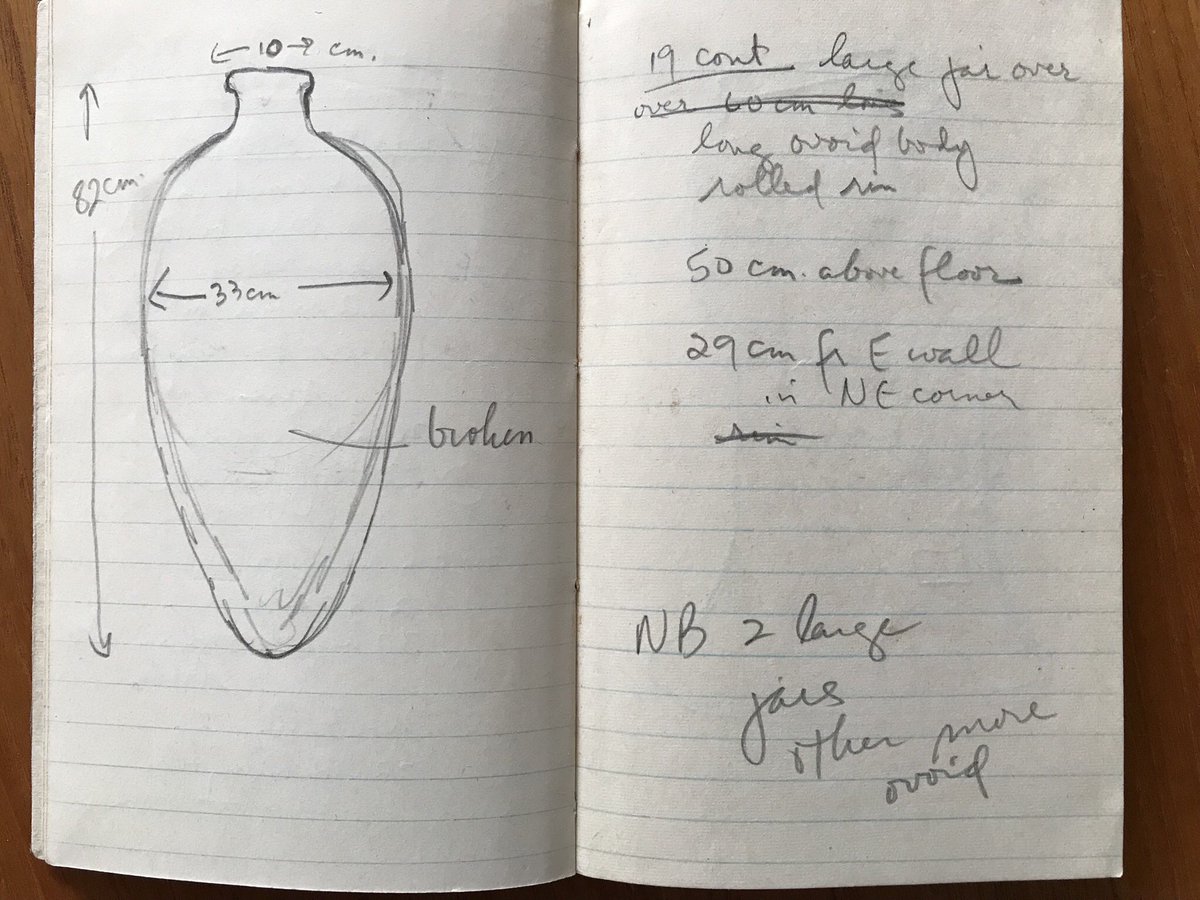 ←10→ cm.
82cm.
33cm
broken
19 cont large jar over
over 60 cm
long ovoid body
rolled rim
50 cm. above floor
29 cm fr E wall
in NE corner
rim
NB 2 large
jars
other more
ovoid